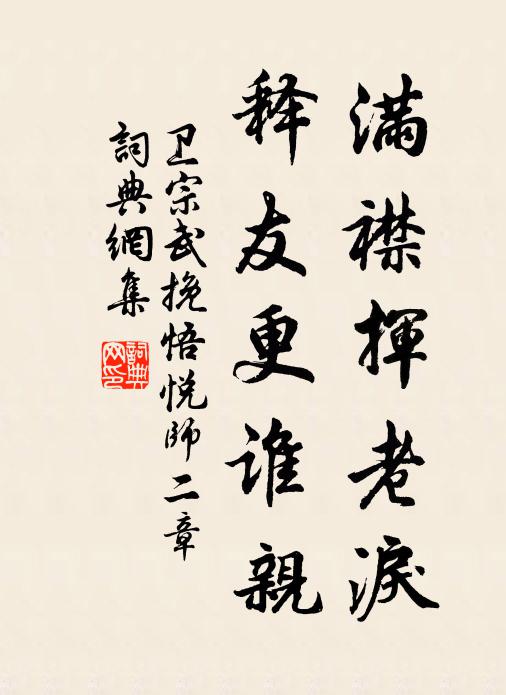 满襟揮老淚
释友更谁親
卫宗武挽悟悦師二章
詞典網集
詞典网印